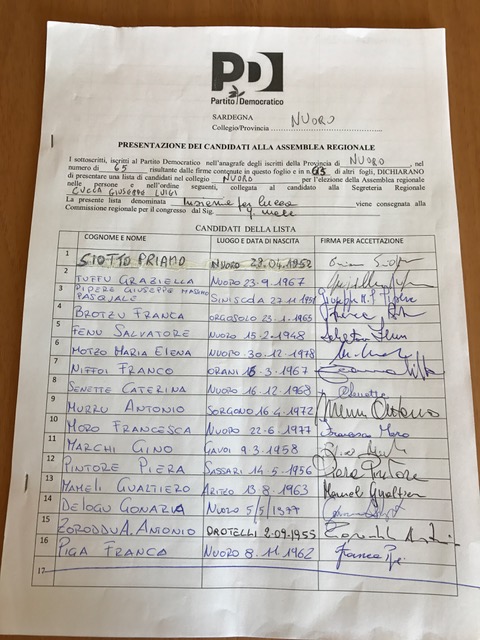 PD
Partito Democratico
SARDEGNA
Collegio/Provincia NUORO
PRESENTAZIONE DEI CANDIDATI ALLA ASSEMBLEA REGIONALE
I sottoscritti, iscritti al Partito Democratico nell'anagrafe degli iscritti della Provincia di NUORO, nel
numero di 65 risultante dalle firme contenute in questo foglio e in n. di altri fogli, DICHIARANO
di presentare una lista di candidati nel collegio NUORO per l'elezione della Assemblea regionale
nelle persone e nell'ordine seguenti, collegata al candidato alla Segreteria Regionale
CUCCA GIUSEPPE LUIGI
La presente lista denominata Insieme per Lucca viene consegnata alla
Commissione regionale per il congresso dal Sig.
CANDIDATI DELLA LISTA
COGNOME E NOME LUOGO E DATA DI NASCITA FIRMA PER ACCETTAZIONE
1 SIOTTO PRIAMO NUORO 29.04.1952
2 TUFFU GRAZIELLA NUORO 23-9-1967
3 PIDERE GIUSEPPE MASSIMO
PASQUALE SINISCOLA 27 11
4 BROTZU FRANCA ORGOSOLO 23.1.1965
5 FENU SALVATORE NUORO 15.2.1948 Salvatore Fenu
6 MOTZO MARIA ELENA NUORO 30.12.1978
7 NIFFOI FRANCO ORANI 3.1967
8 SENETTE CATERINA NUORO 16.12.1968
9 MURRU ANTONIO SORGONO 16.4.1972 Murru Antonio
10 MORO FRANCESCA NUORO 22.6.1977 Francesca Moro
11 MARCHI GINO GAVOI 9.3.1958
12 PINTORE PIERA SASSARI 14.5.1956 Piera Pintore
13 MAMELI GUALTIERO ARITZO 13.8.1963 Mameli Gualtiero
14 DELOGU GONARIA NUORO 5/5/1977
15 ZORODDU A. ANTONIO OROTELLI 2.09.1955
16 PIGA FRANCA NUORO 8.11.1962 Franca Piga
17